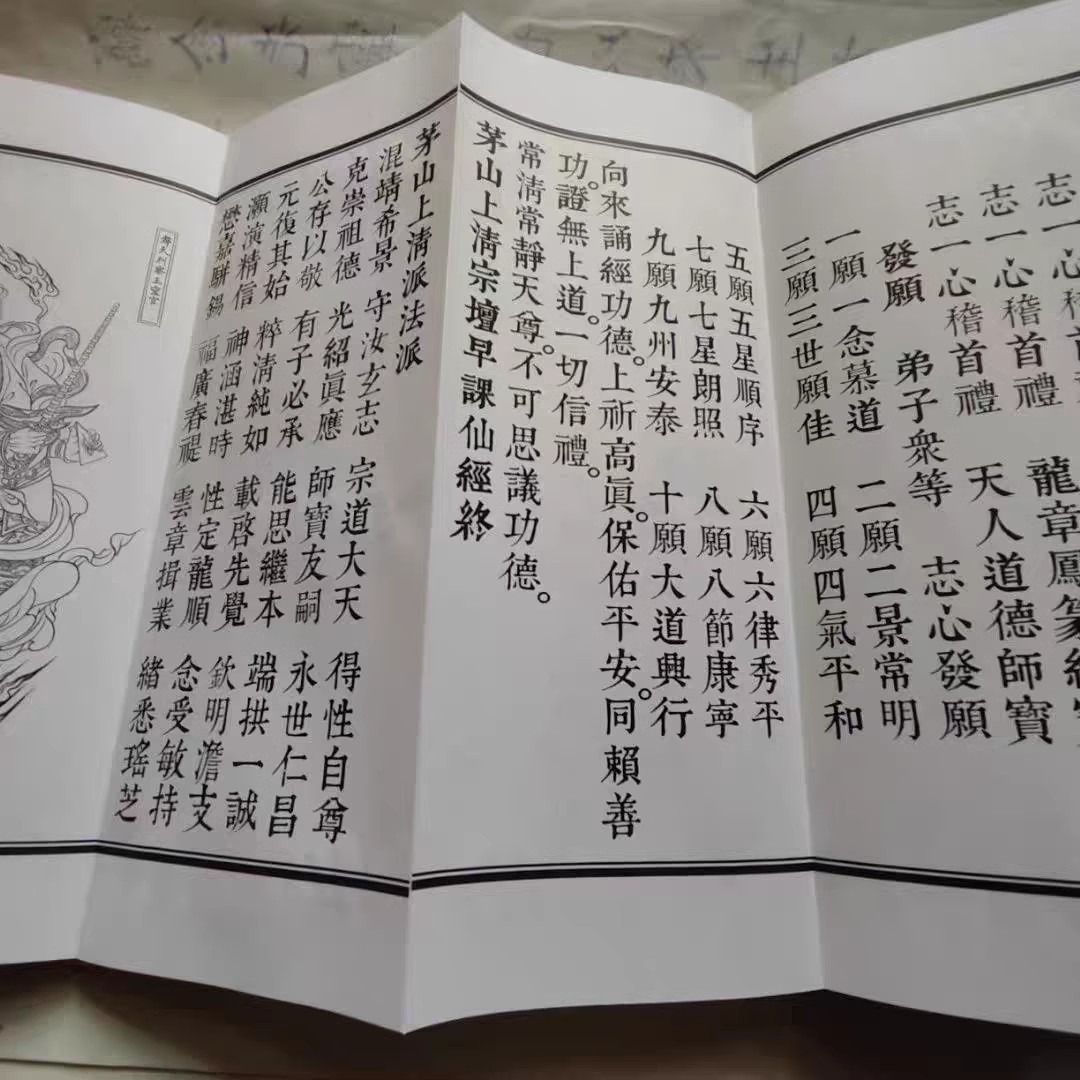 志一心稽首
志一心稽首禮 龍章鳳篆
志一心稽首禮 天人道德師寶
發願 弟子衆等 志心發願
一願一念慕道 二願二景常明
三願三世願佳 四願四氣平和
五願五星順序 六願六律秀平
七願七星朗照 八願八節康寧
九願九州安泰 十願大道興行
向來誦經功德。上祈高眞。保佑平安。同賴善
功。證無上道。一切信禮。
常淸常靜天尊。不可思議功德。
茅山上淸宗壇早課仙經終
茅山上淸派法派
混靖希景 守汝玄志 宗道大天 得性自尊
克崇祖德 光紹眞應 師寶友嗣 永世仁昌
公存以敬 有子必承 能思繼本 端拱一誠
元復其始 粹淸純如 載啓先覺 欽明澹支
瀬演精信 神涵湛時 性定龍順 念受敏持
懋嘉駢錫 福廣春禔 雲章揖業 緒悉瑤芝
糾察王靈官